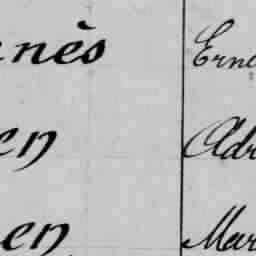 nès Erne
en Adr
en Mar